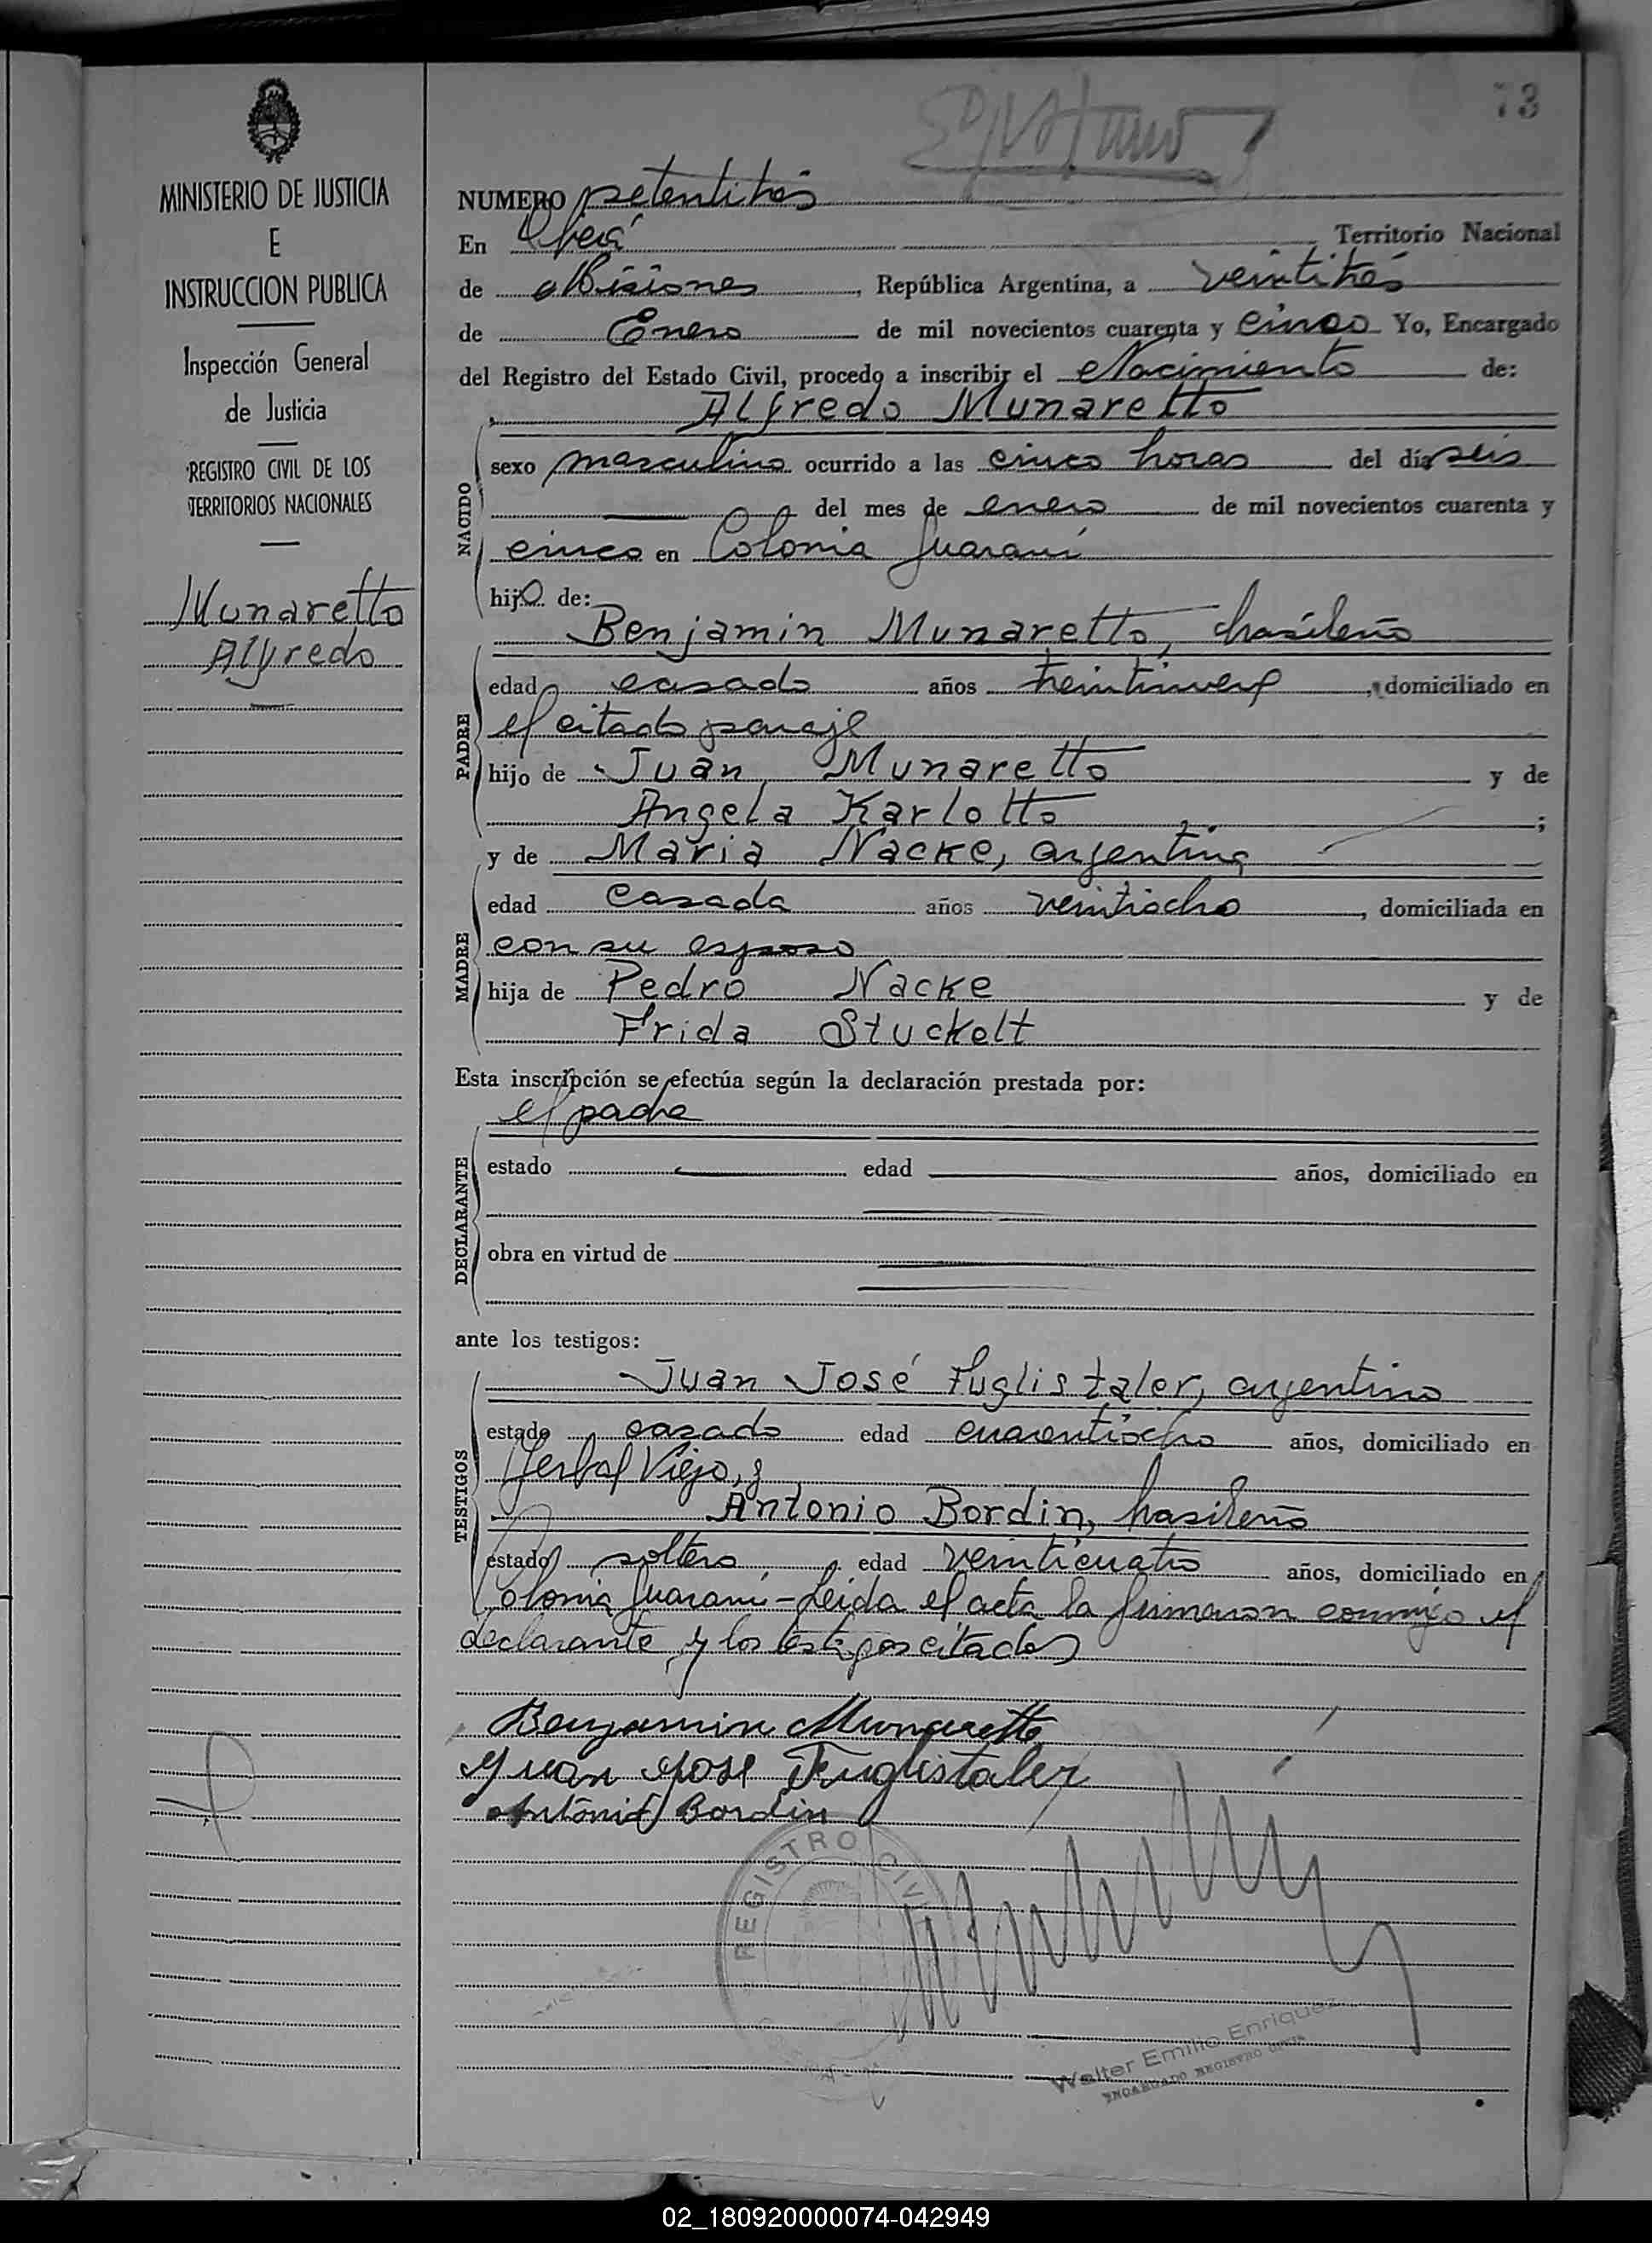 73
MINISTERIO DE JUSTICIA
E
INSTRUCCION PUBLICA
Inspección General
de Justicia
REGISTRO CIVIL DE LOS
TERRITORIOS NACIONALES
Munaretto
Alfredo
NUMERO setentitrés
En Oberá Territorio Nacional
de Misiones, República Argentina, a veintitrés
de Enero de mil novecientos cuarenta y cinco Yo, Encargado
del Registro del Estado Civil, procedo a inscribir el Nacimiento de:
Alfredo Munaretto
NACIDO
sexo masculino ocurrido a las cinco horas del día seis
del mes de enero de mil novecientos cuarenta y
cinco en Colonia Guaraní
hijo de:
Benjamin Munaretto, brasileño
PADRE
edad casado años treintinueve, domiciliado en
el citado paraje
hijo de Juan Munaretto y de
Angela Karlotto;
y de Maria Nacke, argentina
MADRE
edad casada años veintiocho, domiciliada en
con su esposo
hija de Pedro Nacke y de
Frida Stuckelt
Esta inscripción se efectúa según la declaración prestada por:
el padre
DECLARANTE
estado edad años, domiciliado en
obra en virtud de
ante los testigos:
Juan José Fuglistaler, argentino
TESTIGOS
estado casado edad cuarentiocho años, domiciliado en
Yerbal Viejo, y
Antonio Bordin, brasileño
estado soltero, edad veinticuatro años, domiciliado en
Colonia Guaraní - Leida el acta la firmaron conmigo el
declarante y los testigos citados
Benjamin Munaretto
Juan Jose Fuglistaler
Antônio Bordin
REGISTRO CIVIL
Walter Emilio Enriquez
ENCARGADO REGISTRO CIVIL
02_180920000074-042949